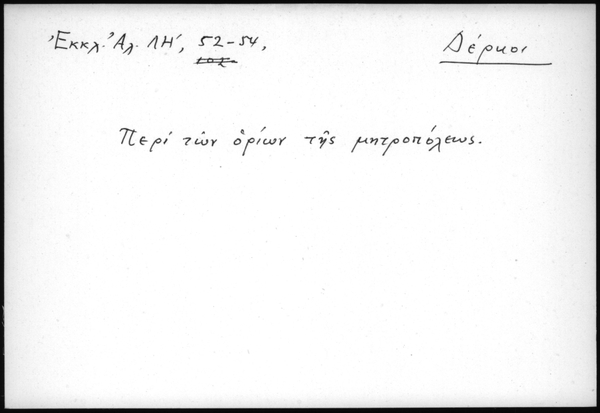 Ἐκκλ. Ἀλ. ΛΗ', 52-54, Δέρκοι
Περί τῶν ὁρίων τῆς μητροπόλεως.